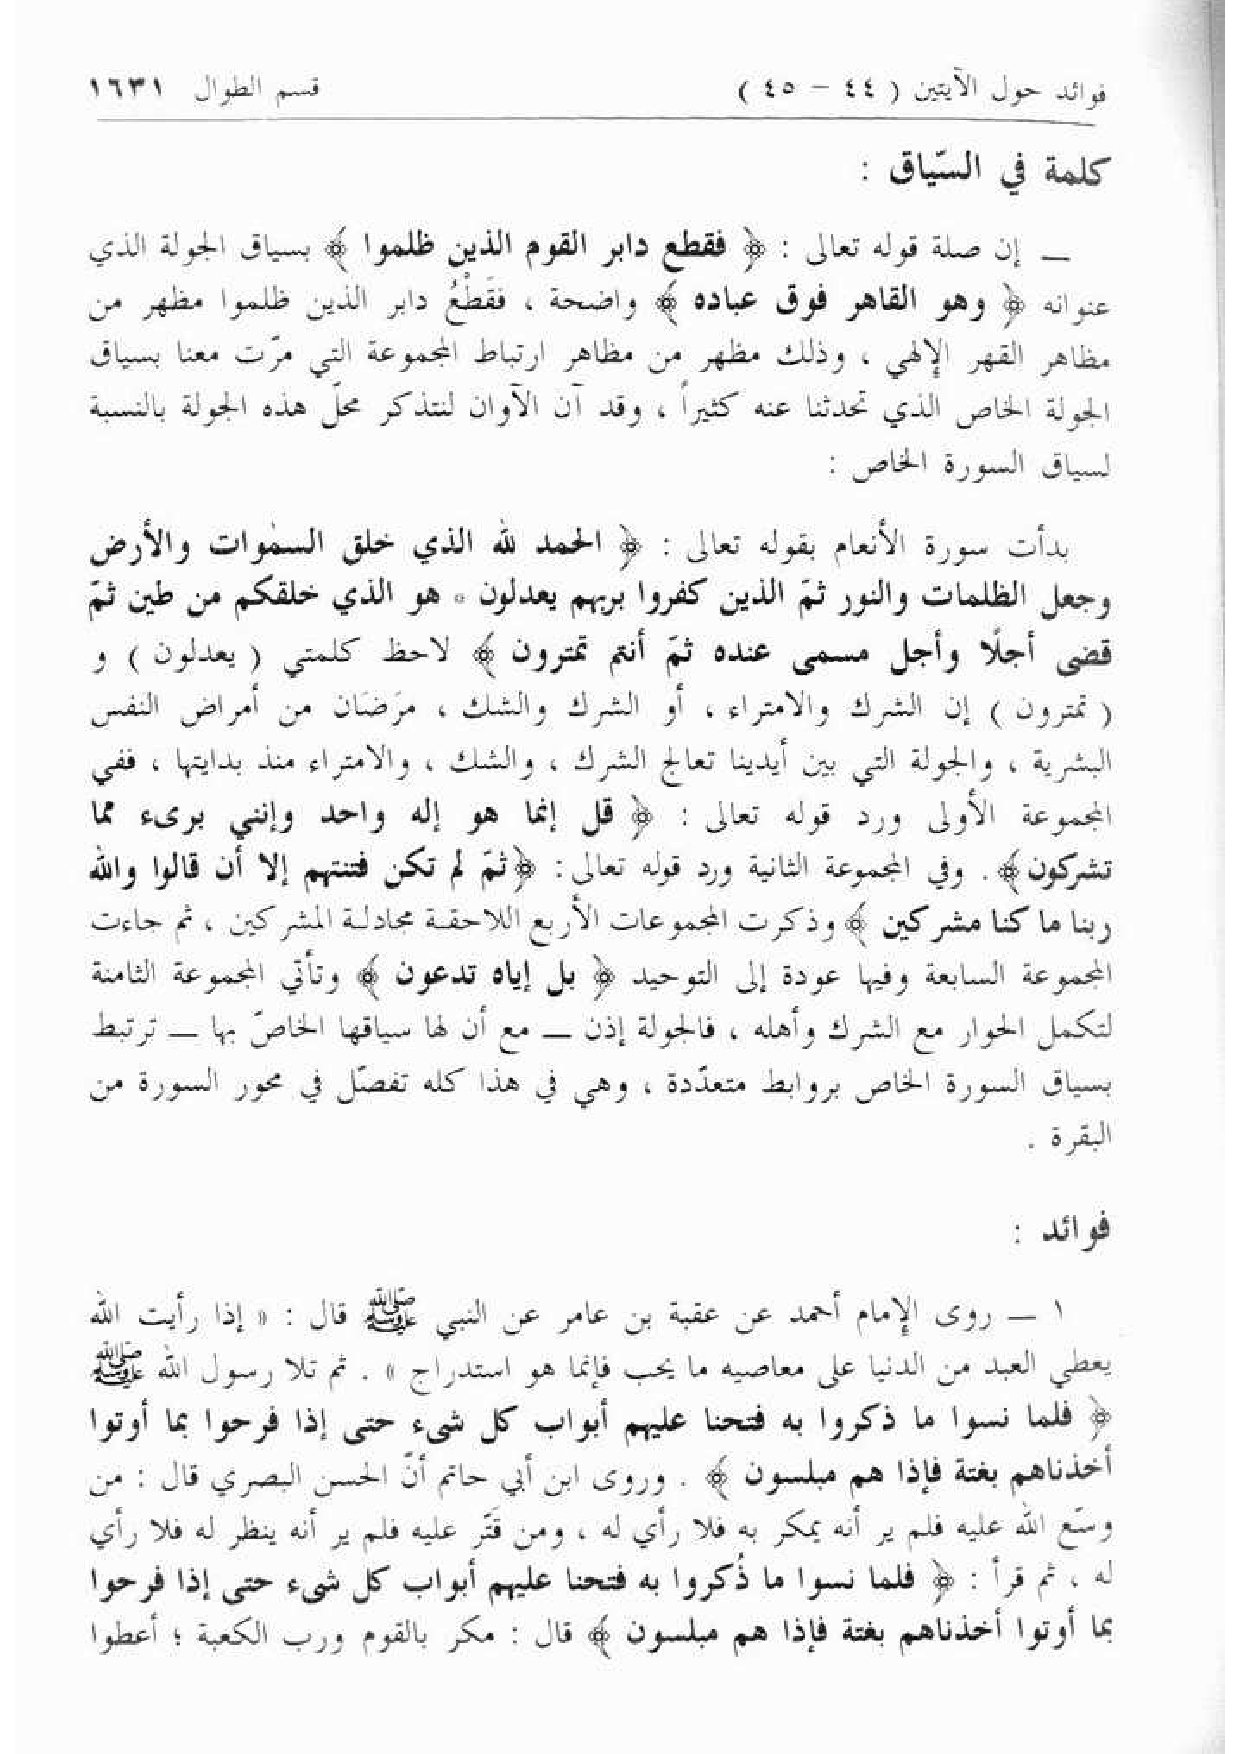 فوائد حول الآيتين ( ٤٤ – ٤٥ ) قسم الطوال ١٦٣١
كلمة في السّياق :
ــ إن صلة قوله تعالى : ﴿ فقطع دابر القوم الذين ظلموا ﴾ بسياق الجولة الذي
عنوانه ﴿ وهو القاهر فوق عباده ﴾ واضحة ، فقَطْعُ دابر الذين ظلموا مظهر من
مظاهر القهر الإلهي ، وذلك مظهر من مظاهر ارتباط المجموعة التي مرّت معنا بسياق
الجولة الخاص الذي تحدثنا عنه كثيراً ، وقد آن الآوان لنتذكر محلّ هذه الجولة بالنسبة
لسياق السورة الخاص :
بدأت سورة الأنعام بقوله تعالى : ﴿ الحمد لله الذي خلق السمٰوات والأرض
وجعل الظلمات والنور ثمّ الذين كفروا بربهم يعدلون * هو الذي خلقكم من طين ثمّ
قضى أجلًا وأجل مسمى عنده ثمّ أنتم تمترون ﴾ لاحظ كلمتي ( يعدلون ) و
( تمترون ) إن الشرك والامتراء ، أو الشرك والشك ، مرَضَان من أمراض النفس
البشرية ، والجولة التي بين أيدينا تعالج الشرك ، والشك ، والامتراء منذ بدايتها ، ففي
المجموعة الأولى ورد قوله تعالى : ﴿ قل إنما هو إله واحد وإنني برىء مما
تشركون ﴾ . وفي المجموعة الثانية ورد قوله تعالى : ﴿ ثمّ لم تكن فتنتهم إلا أن قالوا والله
ربنا ما كنا مشركين ﴾ وذكرت المجموعات الأربع اللاحقة مجادلة المشركين ، ثم جاءت
المجموعة السابعة وفيها عودة إلى التوحيد ﴿ بل إياه تدعون ﴾ وتأتي المجموعة الثامنة
لتكمل الحوار مع الشرك وأهله ، فالجولة إذن ــ مع أن لها سياقها الخاصّ بها ــ ترتبط
بسياق السورة الخاص بروابط متعدّدة ، وهي في هذا كله تفصّل في محور السورة من
البقرة .
فوائد :
١ ــ روى الإمام أحمد عن عقبة بن عامر عن النبي ﷺ قال : « إذا رأيت الله
يعطي العبد من الدنيا على معاصيه ما يحب فإنما هو استدراج » . ثم تلا رسول الله ﷺ
﴿ فلما نسوا ما ذكروا به فتحنا عليهم أبواب كل شىء حتى إذا فرحوا بما أوتوا
أخذناهم بغتة فإذا هم مبلسون ﴾ . وروى ابن أبي حاتم أنّ الحسن البصري قال : من
وسّع الله عليه فلم ير أنه يمكر به فلا رأي له ، ومن قتّر عليه فلم ير أنه ينظر له فلا رأي
له ، ثم قرأ : ﴿ فلما نسوا ما ذُكروا به فتحنا عليهم أبواب كل شىء حتى إذا فرحوا
بما أوتوا أخذناهم بغتة فإذا هم مبلسون ﴾ قال : مكر بالقوم ورب الكعبة ؛ أعطوا